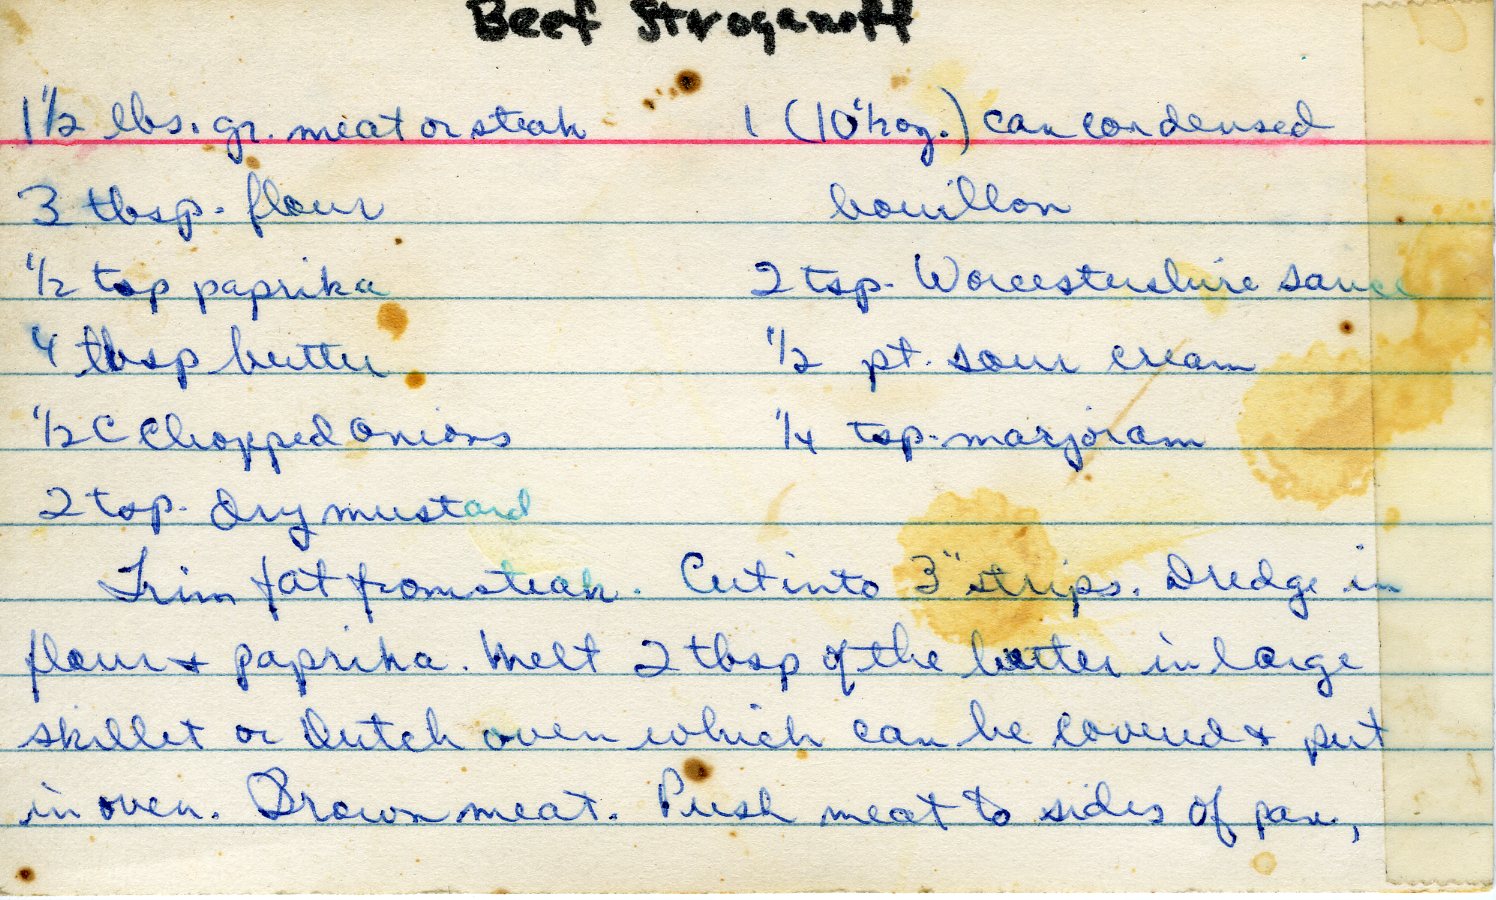 Beef Stroganoff
1 1/2 lbs. gr. meat or steak
3 tbsp. flour
1/2 tsp paprika
4 tbsp butter
1/2 C Chopped Onions
2 tsp. dry mustard
1 (10 1/2 oz.) can condensed
bouillon
2 tsp. Worcestershire sauce
1/2 pt. sour cream
1/4 tsp. marjoram
Trim fat from steak. Cut into 3" strips. Dredge in
flour & paprika. Melt 2 tbsp of the butter in large
skillet or Dutch oven which can be covered & put
in oven. Brown meat. Push meat to sides of pan,